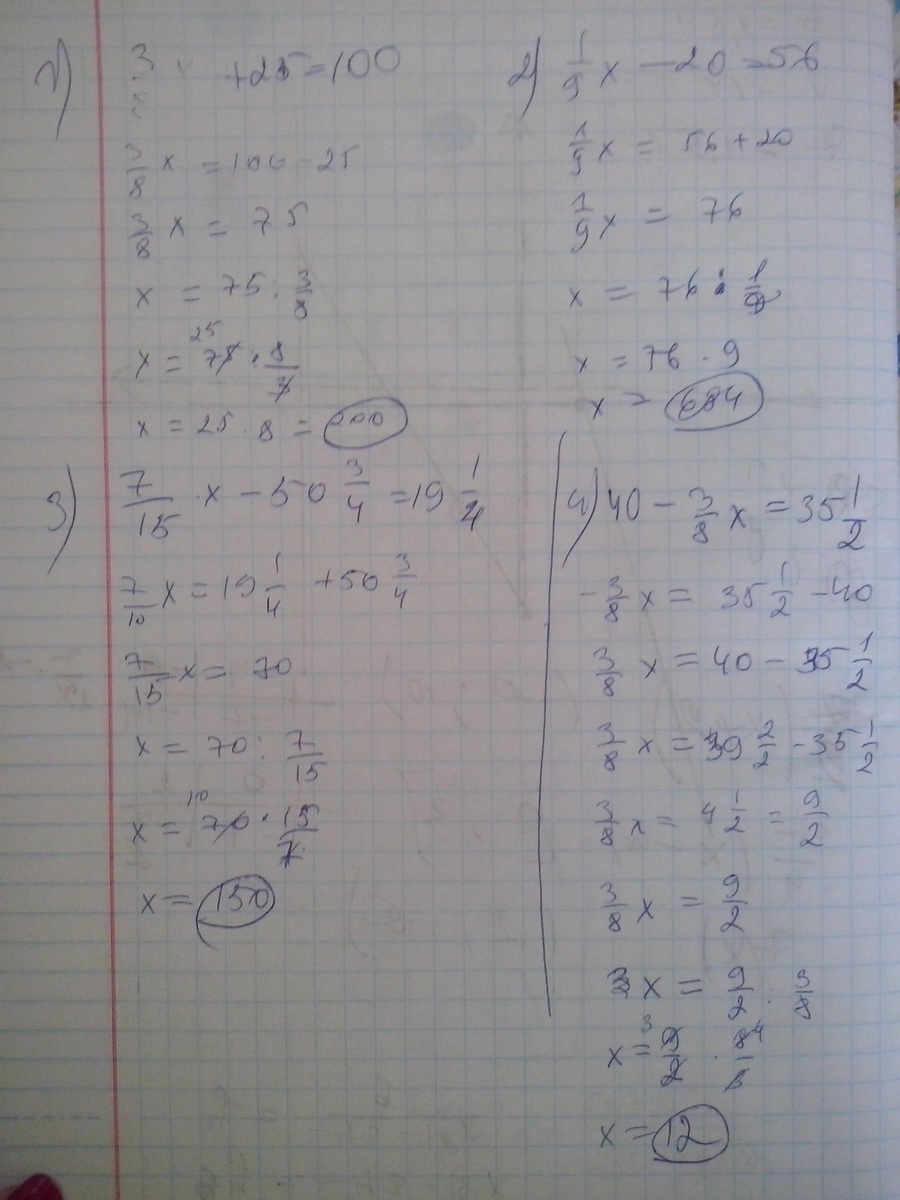 1) 3/8 +25=100
3/8 x = 100-25
3/8 x = 75
x = 75 : 3/8
x = 75 · 8/3 25
x = 25 · 8 = 200
2) 1/9 x - 20 = 56
1/9 x = 56+20
1/9 x = 76
x = 76 : 1/9
x = 76 · 9
x = 684
3) 7/15 · x - 50 3/4 = 19 1/4
7/10 x = 19 1/4 + 50 3/4
7/15 x = 70
x = 70 : 7/15
x = 70 · 15/7 10
x = 150
4) 40 - 3/8 x = 35 1/2
-3/8 x = 35 1/2 - 40
3/8 x = 40 - 35 1/2
3/8 x = 39 2/2 - 35 1/2
3/8 x = 4 1/2 = 9/2
3/8 x = 9/2
3x = 9/2 : 3/8
x = 3 9/2 · 8 4
x = 12